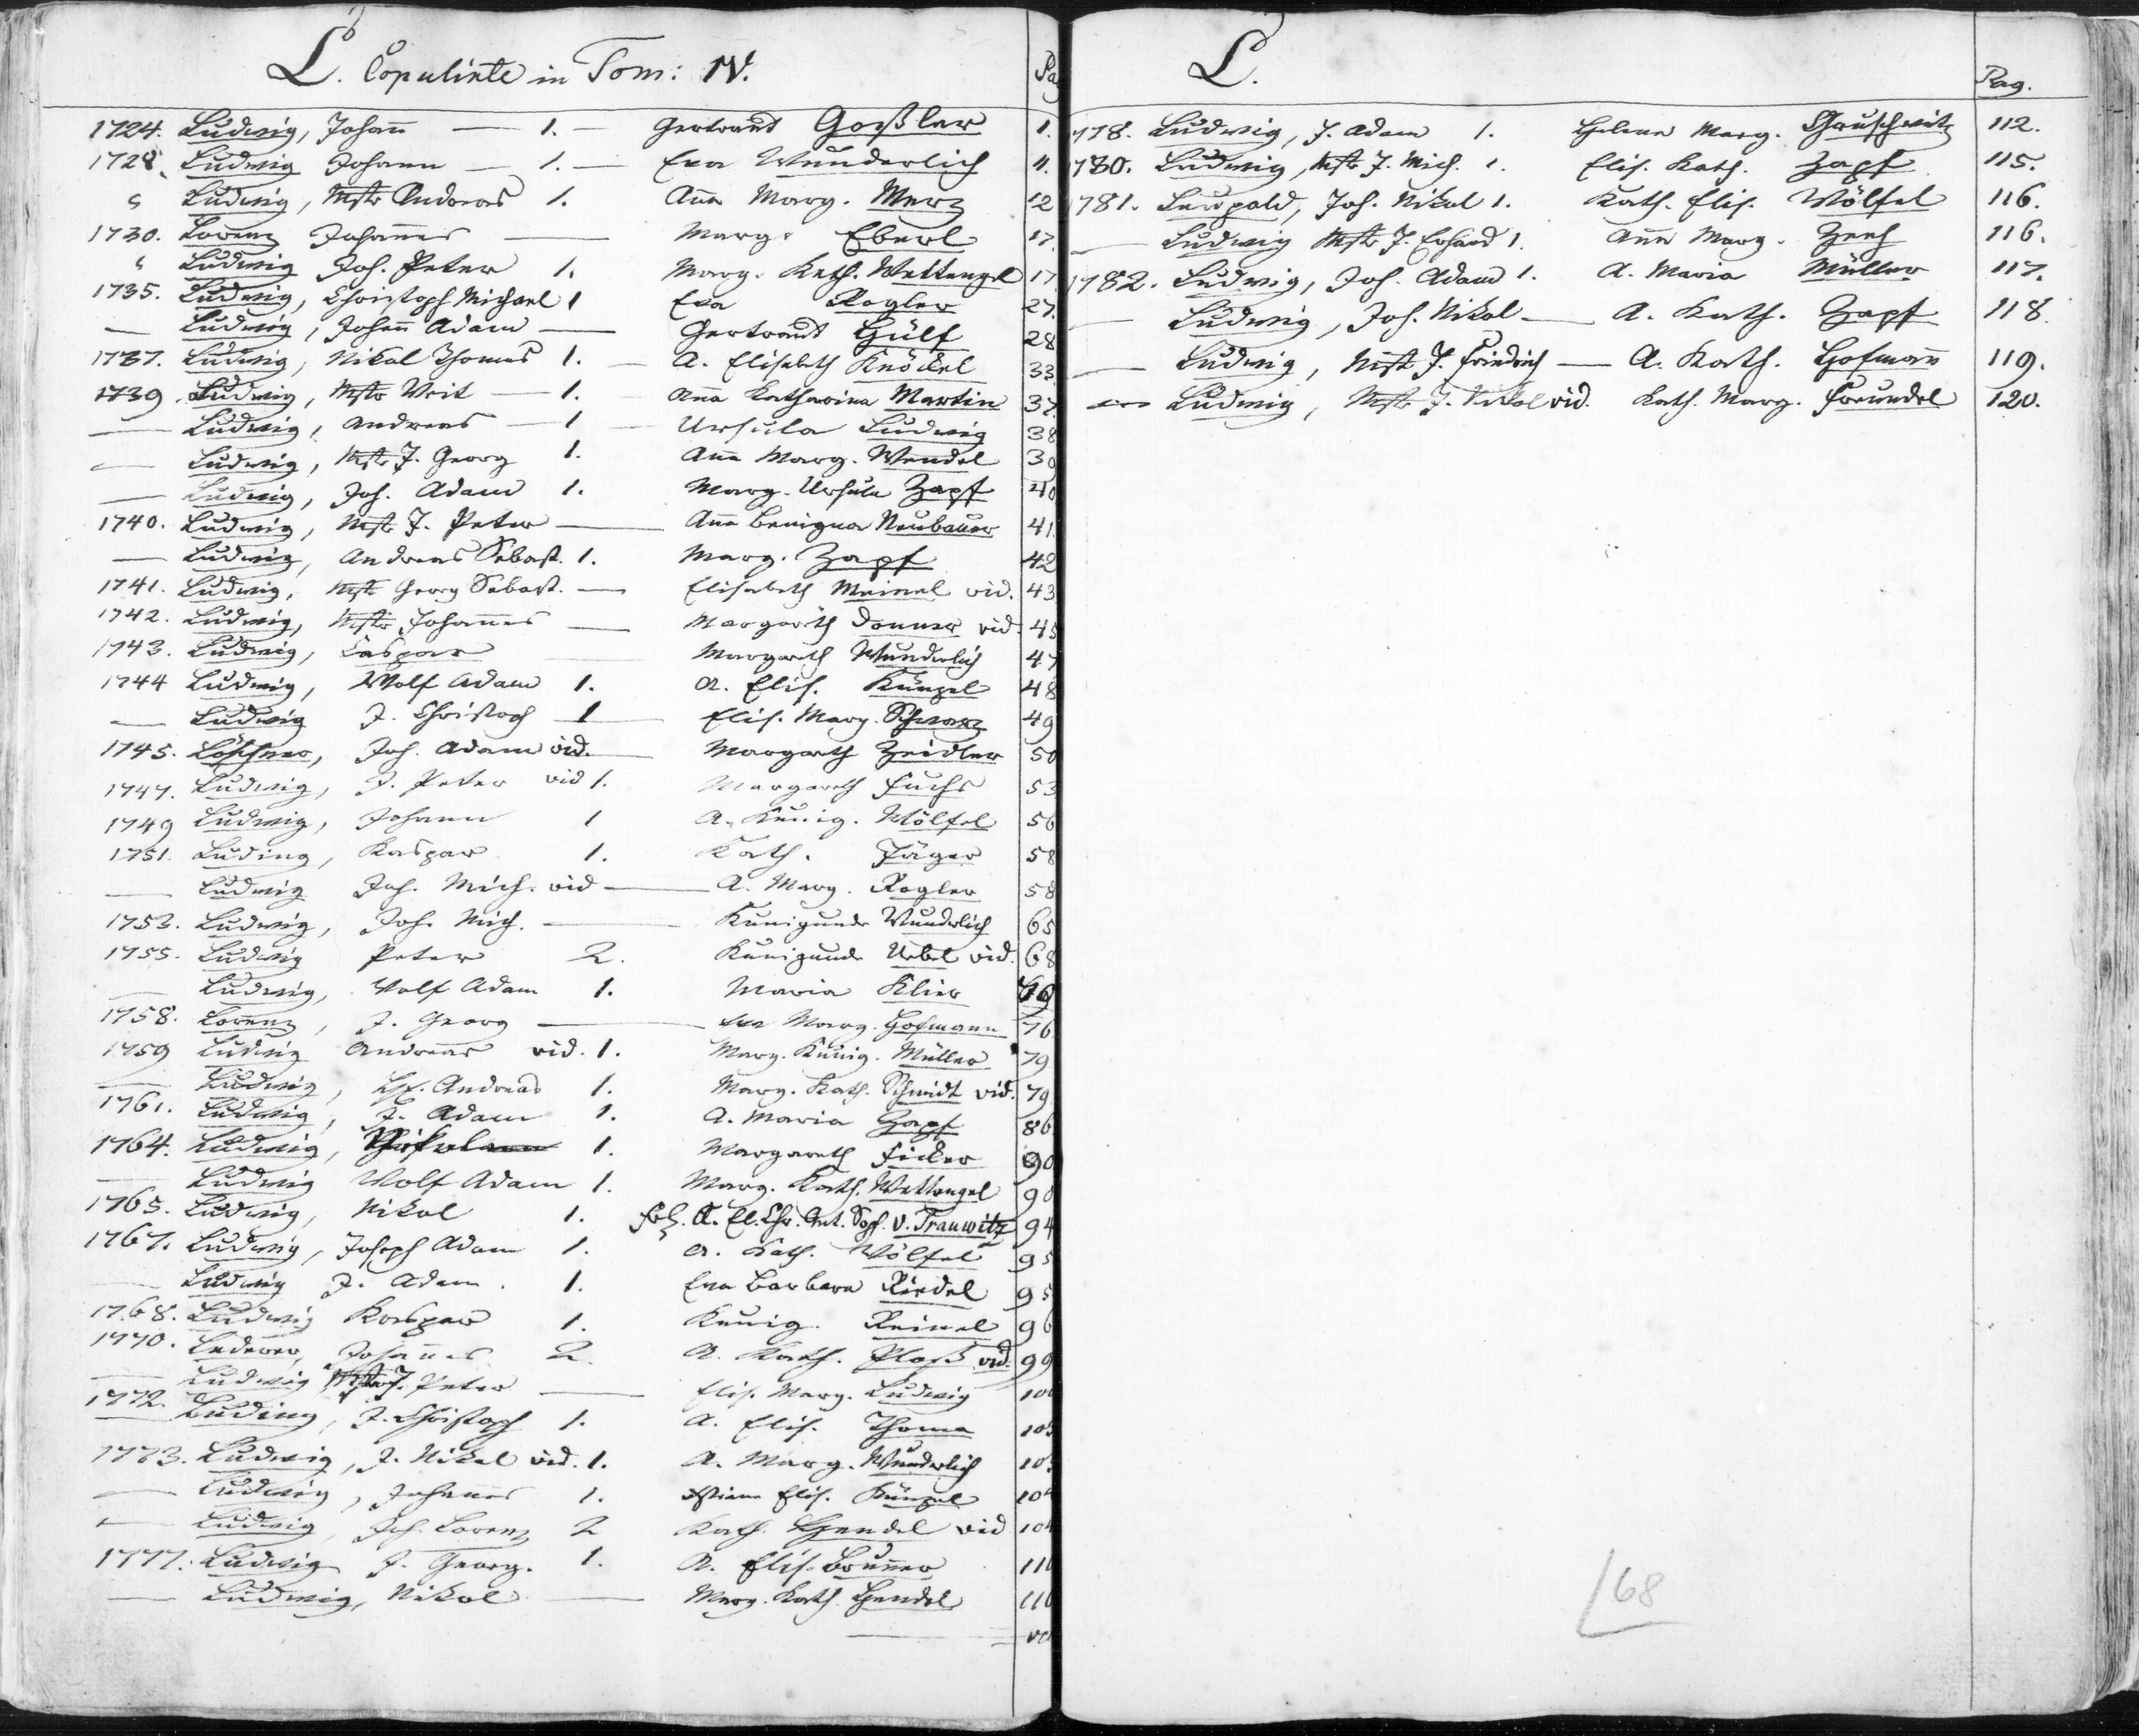 L. Copulirte in Tom: IV. Pag
1724. Ludwig, Johann — 1. — Gertraut Goßler 1.
1728. Ludwig Johann — 1. — Eva Wunderlich 11.
" Ludwig, Mstr Andreas 1. Anna Marg. Merz 12
1730. Lorenz Johannes — Marg. Eberl 17.
" Ludwig Joh. Peter 1. Marg. Kath. Wettengel 17
1735. Ludwig, Christoph Michael 1 Eva Rogler 27.
— Ludwig, Johann Adam — Gertraut Gülf 28
1737. Ludwig, Nikol Thomas 1. — A. Elisabeth Knöckel 33
1739. Ludwig, Mstr Veit — 1. — Anna Katharina Martin 37.
— Ludwig, Andreas — 1 — Ursula Ludwig 38
— Ludwig, Mstr J. Georg 1. Anna Marg. Wendel 39
— Ludwig, Joh. Adam 1. Marg. Ursula Zapf 40
1740. Ludwig, Mstr J. Peter — Anna Benigna Neubauer 41.
— Ludwig, Andreas Sebast. 1. Marg. Zapf 42
1741. Ludwig, Mstr Georg Sebast. — Elisabeth Meinel vid. 43
1742. Ludwig, Mstr Johannes — Margareth Donner vid. 45
1743. Ludwig, Caspar — Margareth Wunderlich 47
1744 Ludwig, Wolf Adam 1. A. Elis. Künzel 48
— Ludwig J. Christoph 1 — Elis. Marg. Schwarz 49
1745. Löschner, Joh. Adam vid. — Margareth Zeidler 50
1747. Ludwig, J. Peter vid 1. Margareth Fuchs 53
1749 Ludwig, Johann 1 A. Kunig. Wölfel 56
1751. Luding, Kaspar 1. Kath. Jäger 58
— Ludwig Joh. Mich. vid — A. Marg. Rogler 58
1753. Ludwig, Joh. Mich. — Kunigunde Wunderlich 65
1755. Ludwig Peter 2. Kunigunde Uebel vid. 68
— Ludwig, Wolf Adam 1. Maria Klier
1758. Lorenz, J. Georg — Eva Marg. Hofmann 76
1759 Ludwig Andreas vid. 1. Marg. Kunig. Müller 79
— Ludwig, Andreas 1. Marg. Kath. Schmidt vid. 79
1761. Ludwig, J. Adam 1. A. Maria Zapf 86
1764. Ludwig, 1. Margareth Ficker 90
— Ludwig Wolf Adam 1. Marg. Kath. Wettengel 90
1765. Ludwig, Nikol 1. A. El. Chr. Ant. Soph. v. Trauwitz 94
1767. Ludwig, Joseph Adam 1. A. Kath. Wölfel 95
— Ludwig J. Adam. 1. Eva Barbara Riedel 95
1768. Ludwig Kaspar 1. Kunig. Reinel 96
1770. Lederer, Johannes 2. A. Kath. Ploß vid. 99
— Ludwig Mstr J. Peter — Elis. Marg. Ludwig 100
1772. Luding, J. Christoph 1. A. Elis. Thoma 103
1773. Ludwig, J. Nikol vid. 1. A. Marg. Wunderlich 103
— Ludwig, Johannes 1. Elis. Künzel 104
— Ludwig, Joh. Lorenz 2 Kath. Hendel vid 104
1777. Ludwig J. Georg. 1. A. Elis. Brunner 110
— Ludwig, Nikol — Marg. Kath. Hendel 110
L. Pag.
778. Ludwig, J. Adam 1. Helena Marg. Gauschwitz 112.
780. Ludwig, Mstr J. Mich. 1. Elis. Kath. Zapf 115.
1781. Leupold, Joh. Nikol 1. Kath. Elis. Wölfel 116.
— Ludwig Mstr J. Erhard 1. Anna Marg. Zeeh 116.
1782. Ludwig, Joh. Adam 1. A. Maria Müller 117.
— Ludwig, Joh. Nikol — A. Kath. Zapf 118.
— Ludwig, Mstr J. Friedrich — A. Kath. Hofmann 119.
— Ludwig, Mstr J. Nikol vid. Kath. Marg. Freundel 120.
68